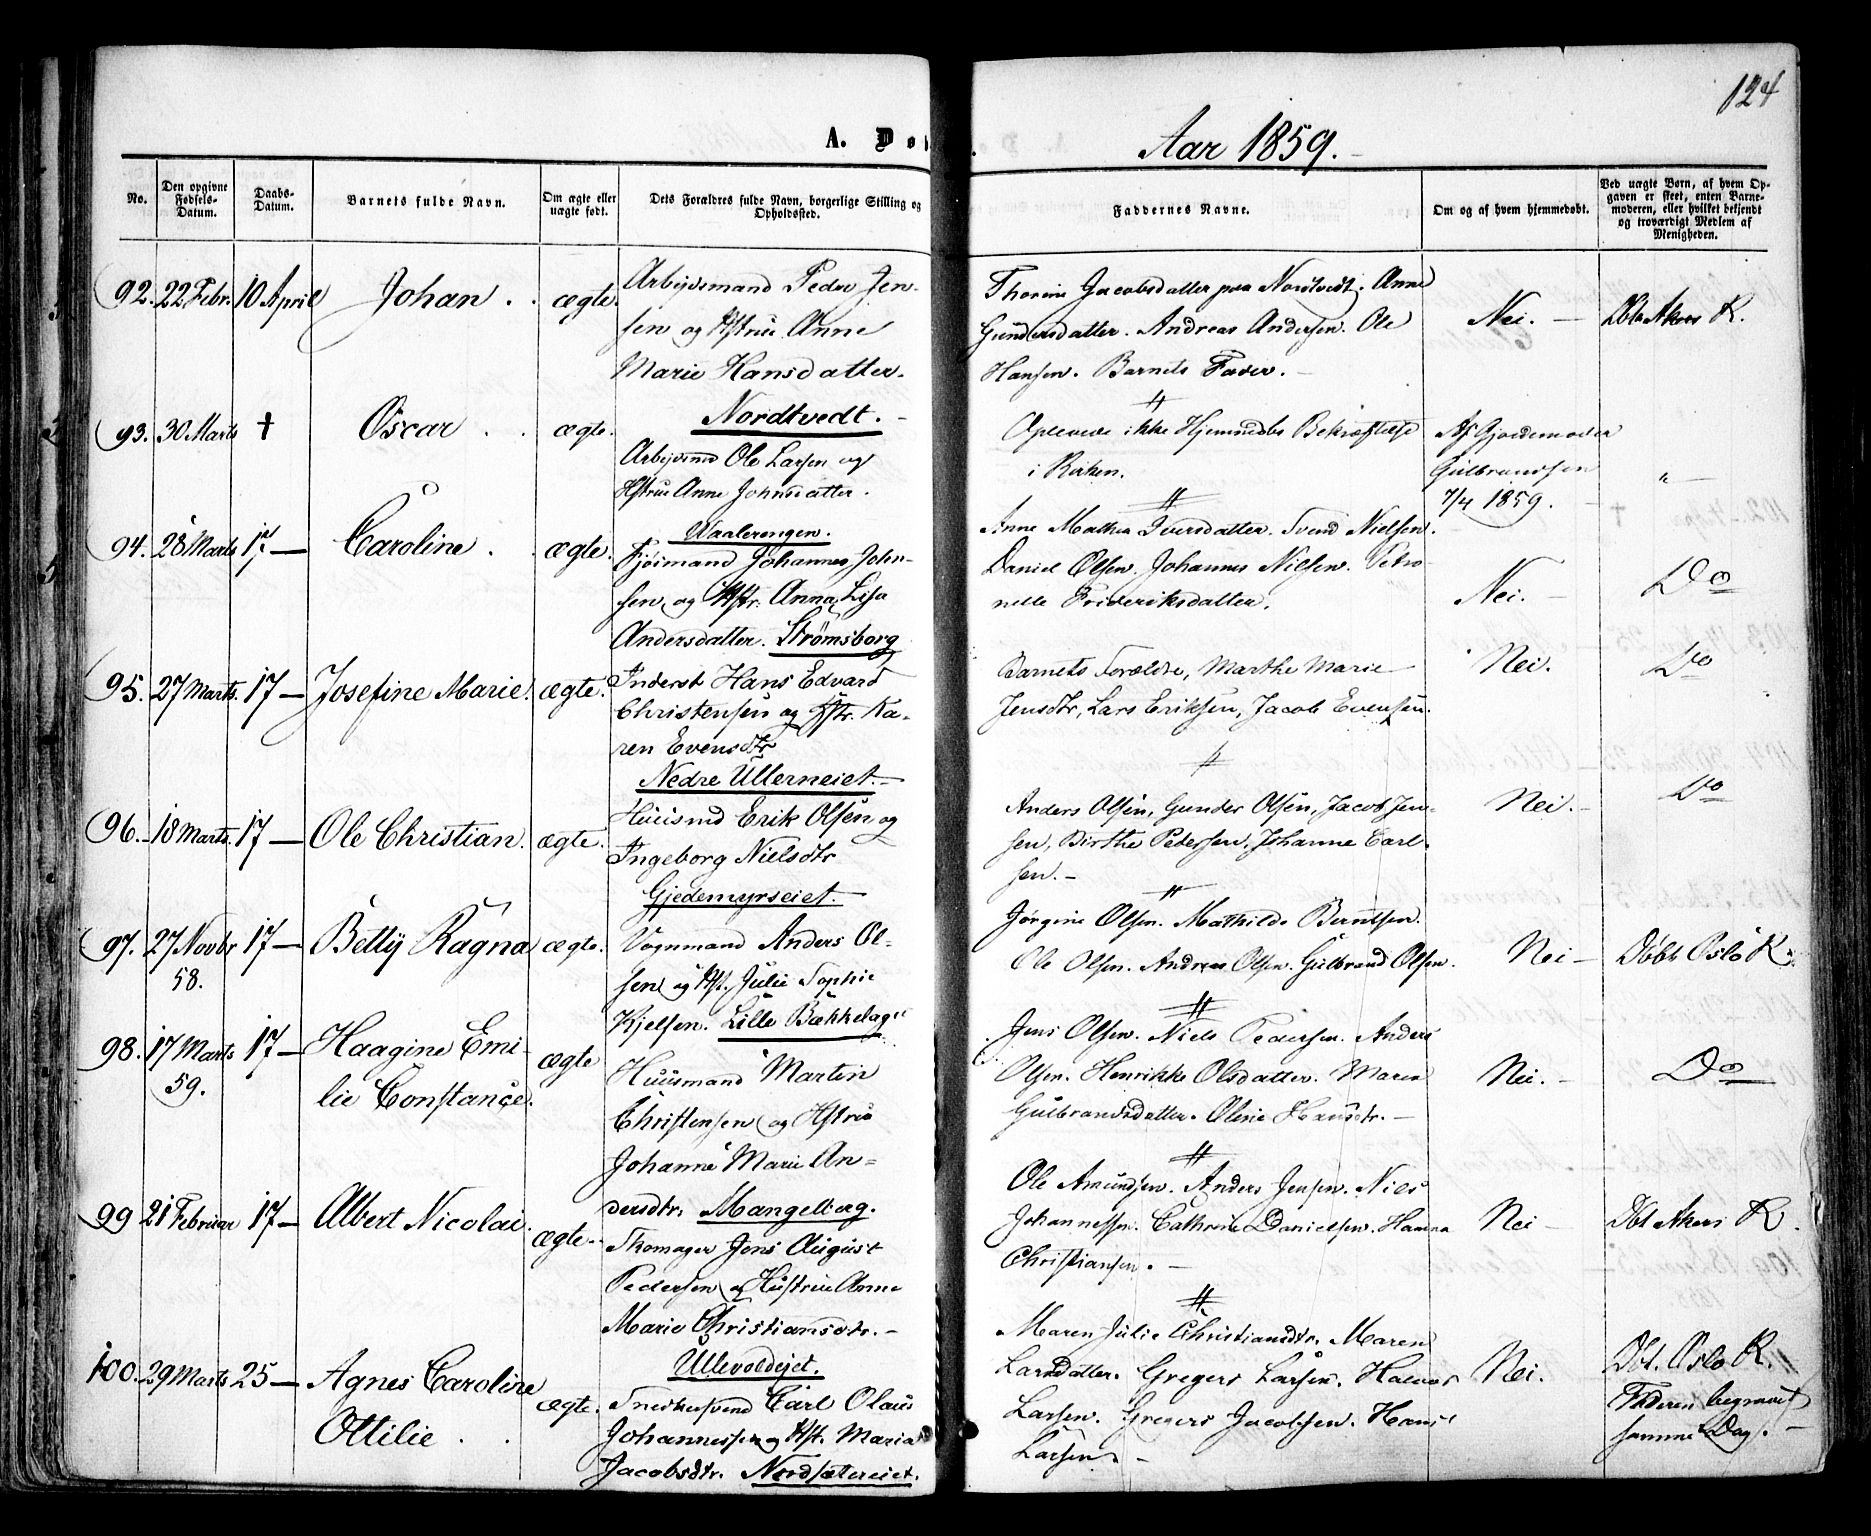 124
A. Dø
Aar 1859.
No.
Den opgivne Fødsels-Datum.
Daabs-Datum.
Barnets fulde Navn.
Om ægte eller uægte født.
Dets Forældres fulde Navn, borgerlige Stilling og Opholdssted.
Faddernes Navne.
Om og af hvem hjemmedøbt.
Ved uægte Børn, af hvem Opgaven er skeet, enten Barnemoderen, eller hvilket bekjendt og troværdigt Medlem af Menigheden.
92. 22 Febr. 10 April Johan. ægte.
Arbejdsmand Peder Jen-
sen og Hstrue Anne
Marie Hansdatter.
Nordtvedt.
Thorine Jacobsdatter paa Nordtvedt. Anne
Gundersdatter. Andreas Andersen. Ole
Hansen. Barnets Fader.
Nei. Dbt Akers K.
93. 30 Marts † Oscar ægte.
Arbejdsmd Ole Larsen og
Hstrue Anne Johnsdatter.
Waalerengen.
Oplevede ikke Hjemmedbs Bekræftelse
i Kirken.
Af Gjordemoder
Gulbrandsen
7/4 1859.
"
94. 28 Marts 17 — Caroline ægte.
Fjøimand Johannes John-
sen og Hstr. Anna Lisa
Andersdatter. Strømsborg
Anne Mathea Iversdatter. Svend Nielsen.
Daniel Olsen. Johannes Nilsen. Petro-
nelle Frideriksdatter.
Nei. Do
95. 27 Marts. 17 — Josefine Marie. ægte.
Inderst Hans Edvard
Christensen og Hstr. Ka-
ren Evensdtr
Nedre Ullerneiet.
Barnets Forældre, Marthe Marie
Jensdtr, Lars Eriksen, Jacob Evensen.
Nei. Do
96. 18 Marts. 17 — Ole Christian. ægte.
Huusmd Erik Olsen og
Ingeborg Nielsdtr
Gjedemyrseiet.
Anders Olsen, Gunder Olsen, Jacob Jen-
sen, Birthe Pedersen, Johanne Carl-
sen.
Nei. Do
97. 27 Novbr 58. 17 — Betty Ragna ægte.
Vognmand Anders Ol-
sen og Hst. Julie Sophie
Kjelsen. Lille Bækkelaget
Jørgine Olsen. Mathilde Berntsen.
Ole Olsen. Andreas Olsen. Gulbrand Olsen.
Nei — Døbt Oslo K.
98. 17 Marts 59. 17 — Haagine Emi-
lie Constance. ægte
Huusmand Martin
Christensen og Hstrue
Johanne Marie An-
dersdtr. Mangelberg.
Jens Olsen. Niels Pedersen. Anders
Olsen. Henrikke Olsdatter. Maren
Gulbrandsdatter. Oline Hansdtr.
Nei. Do
99 21 Februar 17 — Albert Nicolai. ægte.
Skomager Jens August
Pedersen og Hustrue Anne
Marie Christiansdtr.
Ullevoldejet.
Ole Amundsen. Anders Jensen. Niels
Johannessen. Cathrine Danielsen. Hanna
Christiansen.
Nei — Dbt Akers K.
100. 29 Marts 25 — Agnes Caroline
Ottilie ægte.
Snedkersvend Carl Olaus
Johannessen og Hst. Maria
Jacobsdtr. Nordsætereiet.
Maren Julie Christiansdtr. Maren
Larsdatter. Gregers Larsen. Halvor
Larsen. Gregers Jacobsen. Hans
Larsen.
Nei. Dbt. Oslo K.
Faderen begravet
samme Dag.